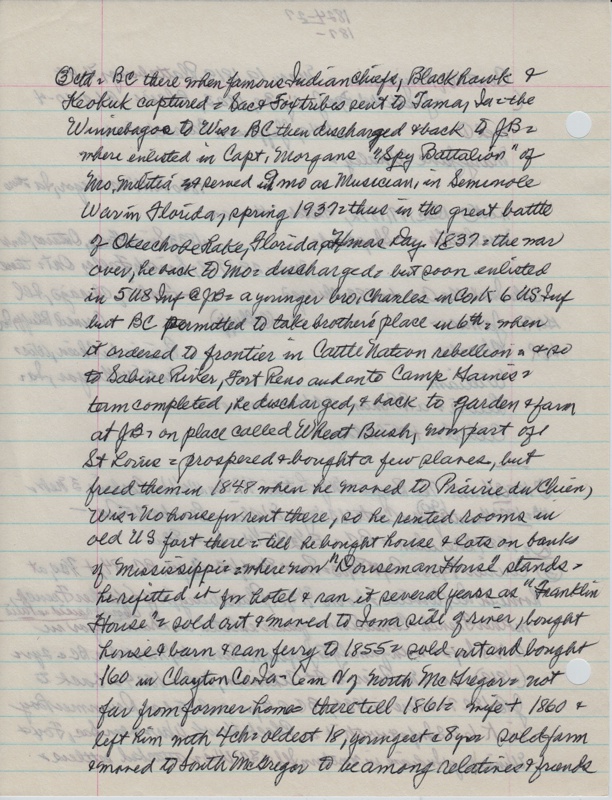 1824-27
187-
③ ctd = BC there when famous Indian Chiefs, Black Hawk &
Keokuk captured = Sac & Fox tribes sent to Tama, Ia = the
Winnebagos to Wis = BC then discharged & back to JB =
where enlisted in Capt. Morgans "Spy Battalion" of
Mo. Militia & served 9 mo as Musician, in Seminole
War in Florida, spring 1937 = thus in the great battle
of Okeechobe Lake, Florida, Xmas Day 1837 = the war
over, he back to Mo = discharged = but soon enlisted
in 5 US Inf @ JB = a younger bro, Charles in Co. K 6 US Inf
but BC permitted to take brother's place in 6th = when
it ordered to frontier in Cattle Nation rebellion = & so
to Sabine River, Fort Reno and on to Camp Haines =
term completed, he discharged, & back to garden & farm
at JB = on place called Wheat Bush, now part of
St Louis = prospered & bought a few slaves, but
freed them in 1848 when he moved to Prairie du Chien,
Wis = No house for rent there, so he rented rooms in
old US fort there = till he bought house & lots on banks
of Mississippi = where now "Douseman House" stands =
he refitted it for hotel & ran it several years as "Franklin
House" = sold out & moved to Iowa side of river, bought
house & barn & ran ferry to 1855 = sold out and bought
160 in Clayton Co. Ia - 6 m N of North McGregor = not
far from former home = there till 1861 = wife + 1860 &
left him with 4 ch = oldest 18, youngest a 8 yrs sold farm
& moved to South McGregor to be among relatives & friends